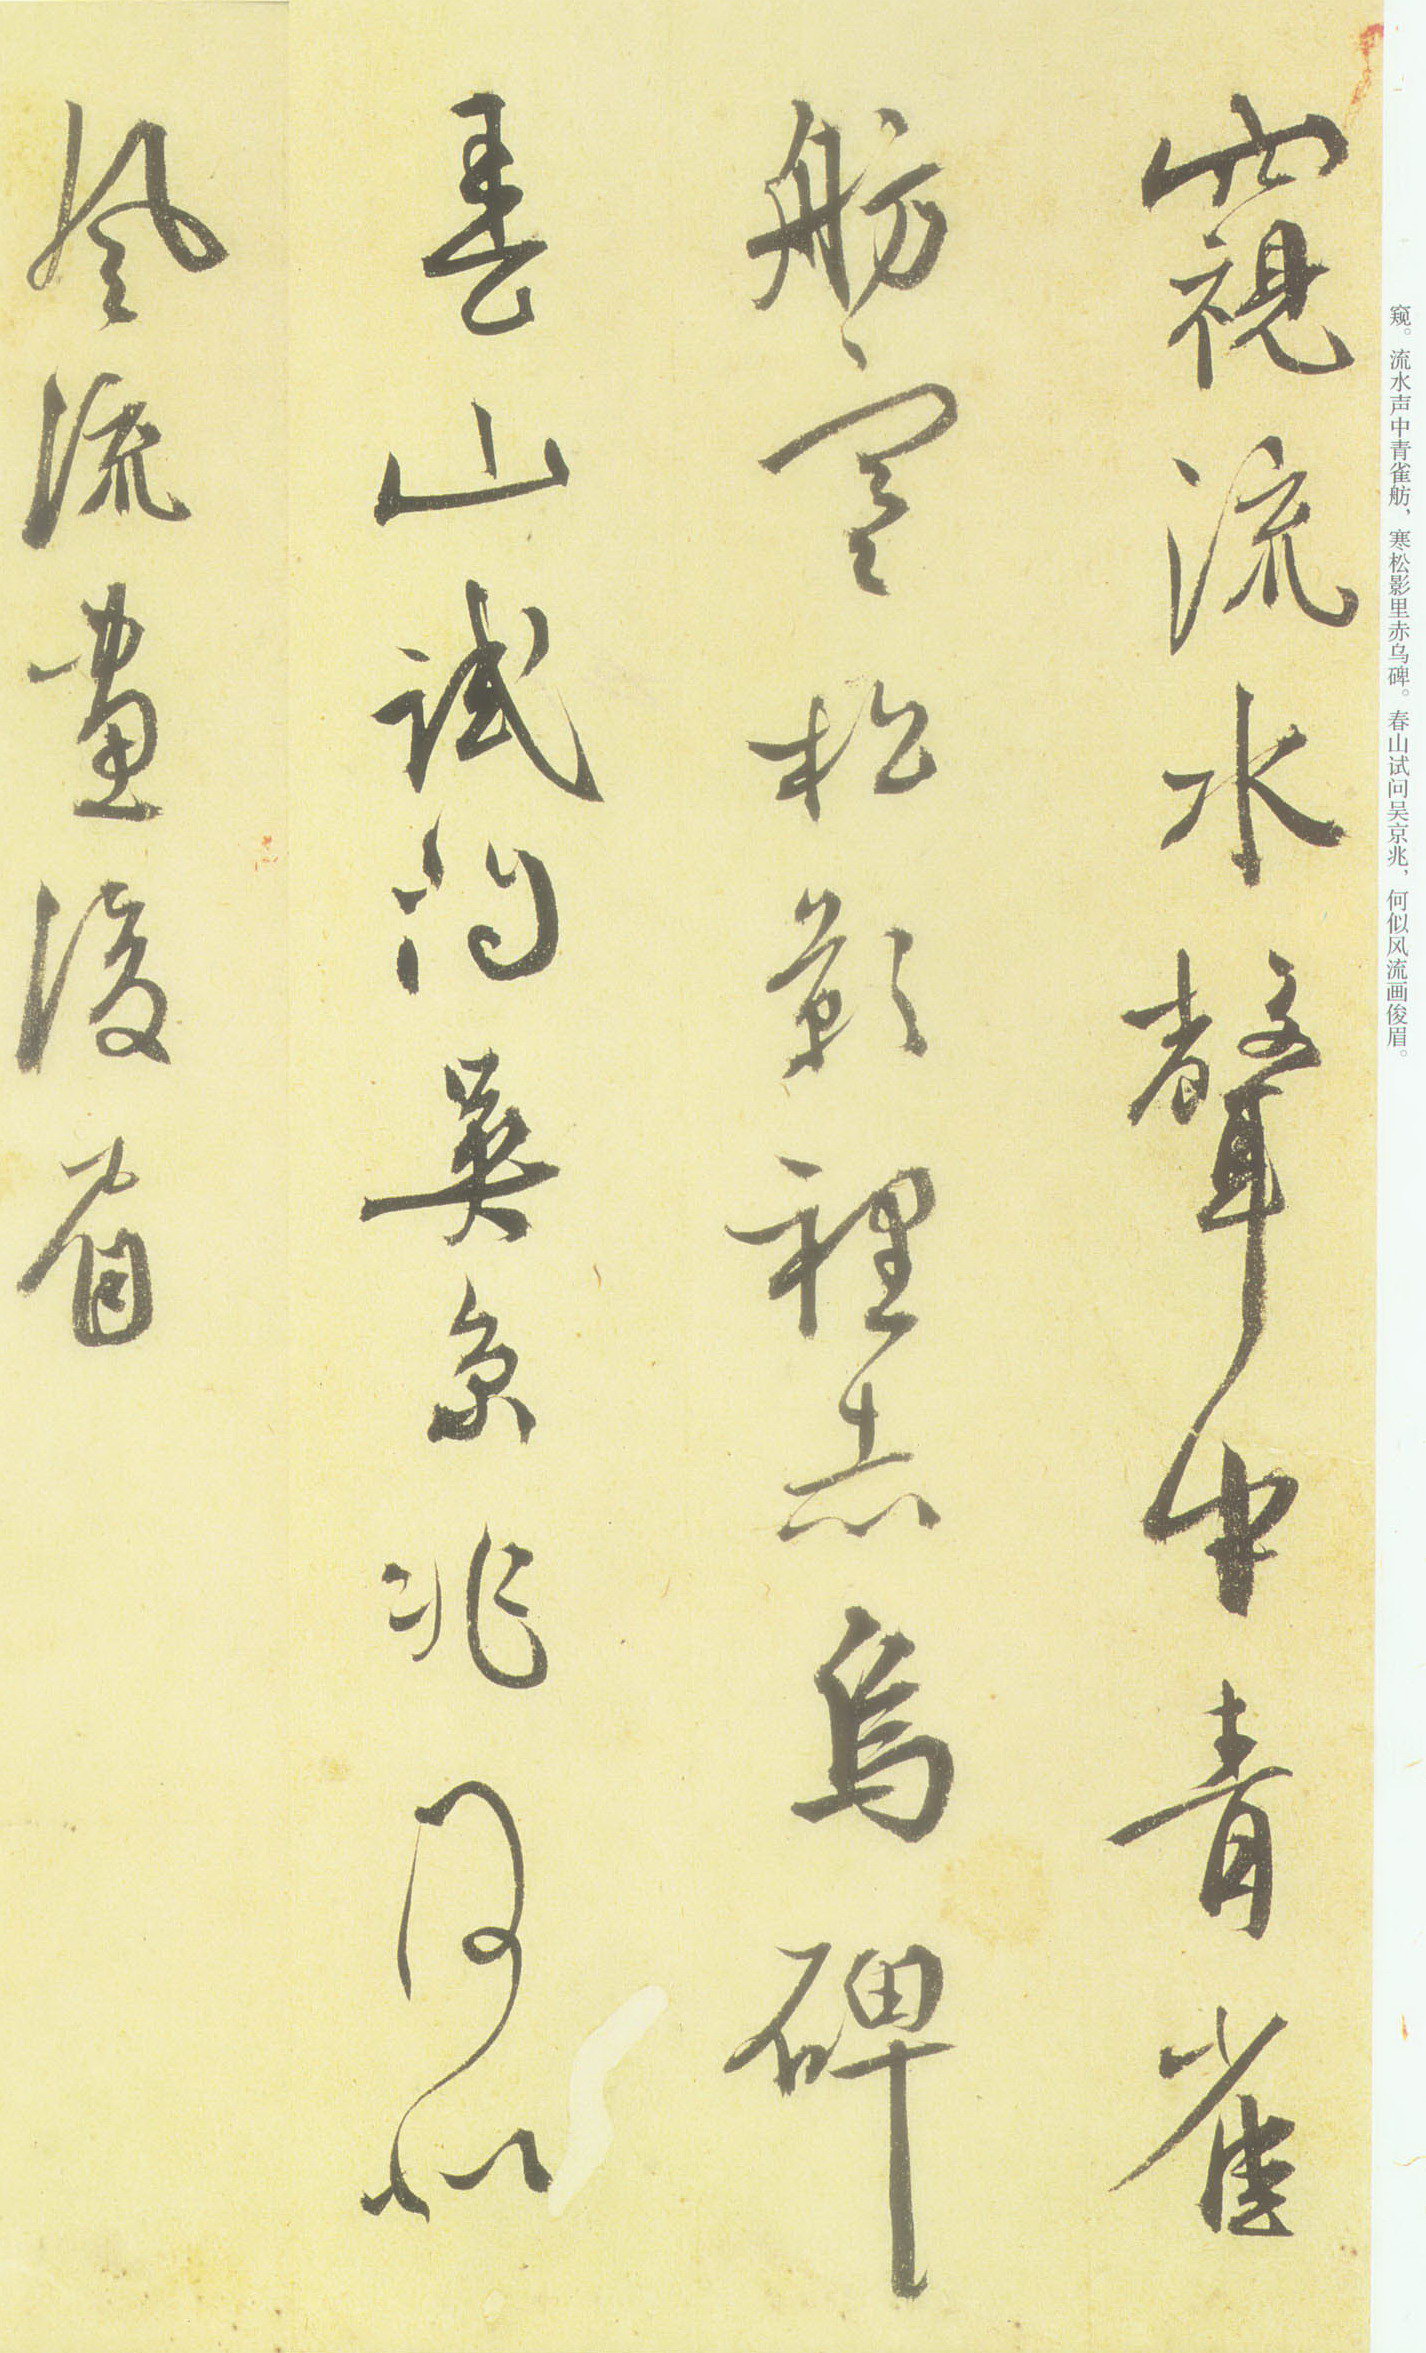 窺流水聲中青雀
舫寒松影裡赤烏碑
春山試問吳京兆何似
風流畫浚眉
窥。流水声中青雀舫，寒松影里赤乌碑。春山试问吴京兆，何似风流画俊眉。